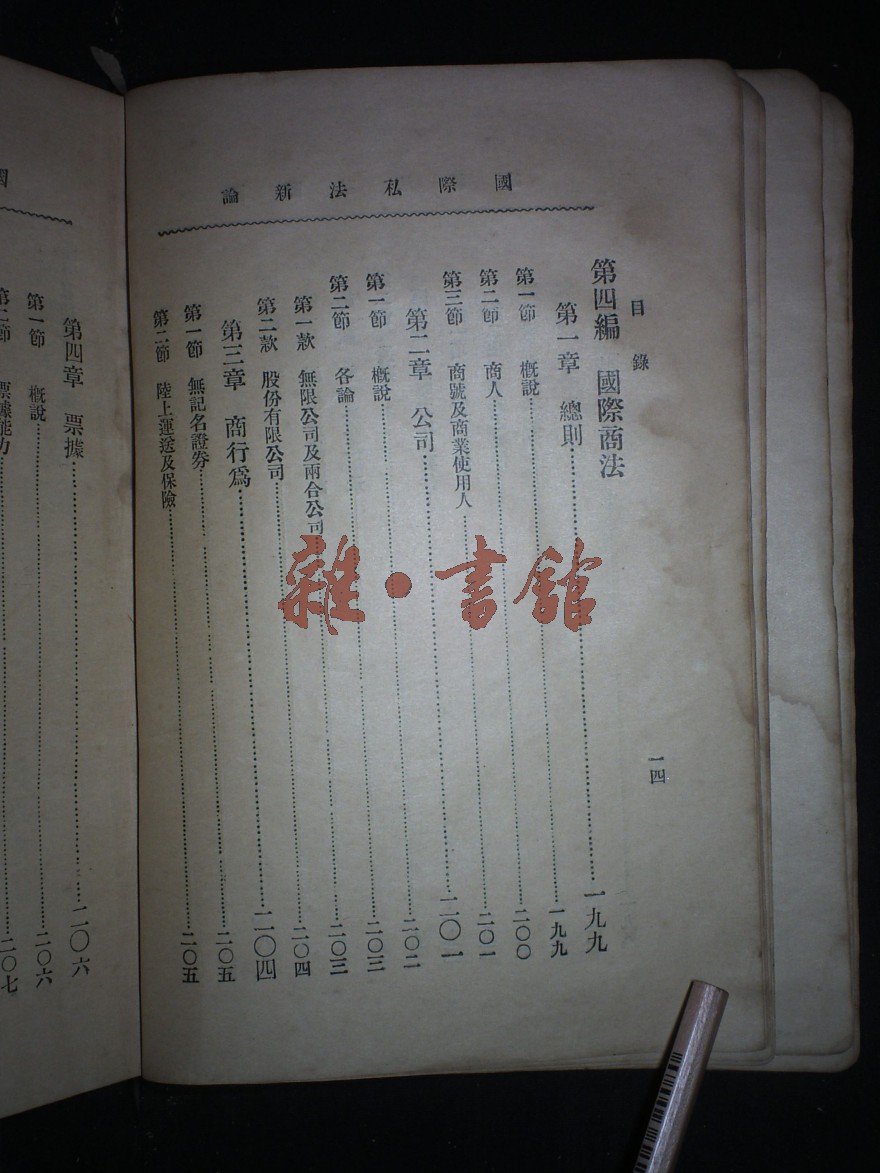 國際私法新論
目錄
一四
第四編 國際商法
第一章 總則……一九九
第一節 概說……一九九
第二節 商人……二〇〇
第三節 商號及商業使用人……二〇一
第二章 公司……二〇一
第一節 概說……二〇二
第二節 各論……二〇三
第一款 無限公司及兩合公司……二〇三
第二款 股份有限公司……二〇四
第三章 商行爲……二〇四
第一節 無記名證券……二〇五
第二節 陸上運送及保險……二〇五
第四章 票據……二〇六
第一節 概說……二〇六
第二節 票據能力……二〇七
雜·書館